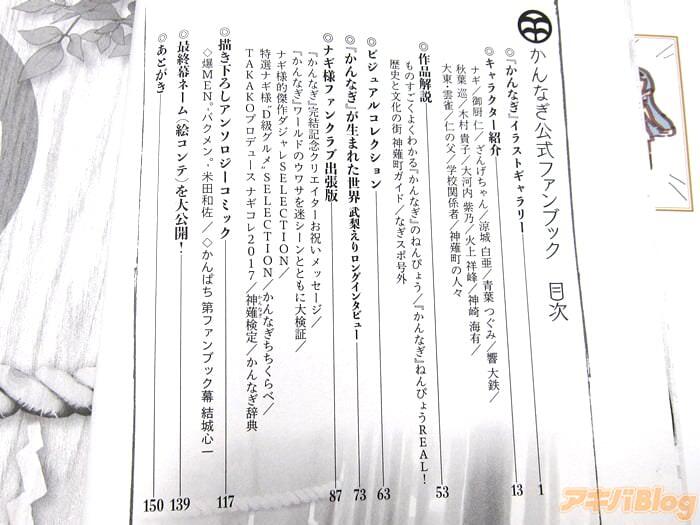 かんなぎ公式ファンブック 目次
◎『かんなぎ』イラストギャラリー 1
◎キャラクター紹介 13
ナギ／御厨 仁／ざんげちゃん／涼城 白亜／青葉 つぐみ／響 大鉄／
秋葉 巡／木村 貴子／大河内 紫乃／火上 祥峰／神崎 海有／
大東 雲雀／仁の父／学校関係者／神薙町の人々
◎作品解説 53
ものすごくよくわかる『かんなぎ』のねんぴょう／『かんなぎ』ねんぴょうREAL！
歴史と文化の街 神薙町ガイド／なぎスポ号外
◎ビジュアルコレクション 63
◎『かんなぎ』が生まれた世界 武梨えりロングインタビュー 73
◎ナギ様ファンクラブ出張版 87
『かんなぎ』完結記念クリエイターお祝いメッセージ／
『かんなぎ』ワールドのウワサを迷シーンとともに大検証／
ナギ様的傑作ダジャレSELECTION／
特選ナギ様“D級グルメ”SELECTION／かんなぎちちくらべ／
TAKAKOプロデュース ナギコレ2017／神薙検定／かんなぎ辞典
◎描き下ろしアンソロジーコミック 117
◇爆MEN。バクメン。米田和佐／◇かんぱち 第ファンブック幕 結城心一
◎最終幕ネーム（絵コンテ）を大公開！ 139
◎あとがき 150
アキバBlog